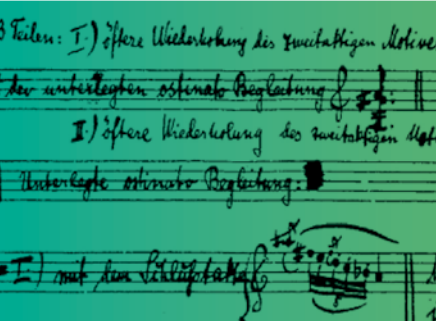 3 Teilen: I.) öftere Wiederholung des zweitaktigen Motive
der unterlegten ostinato Begleitung
II.) öftere Wiederholung des zweitaktigen Mot
Unterlegte ostinato Begleitung:
I) mit dem Schlußtakte